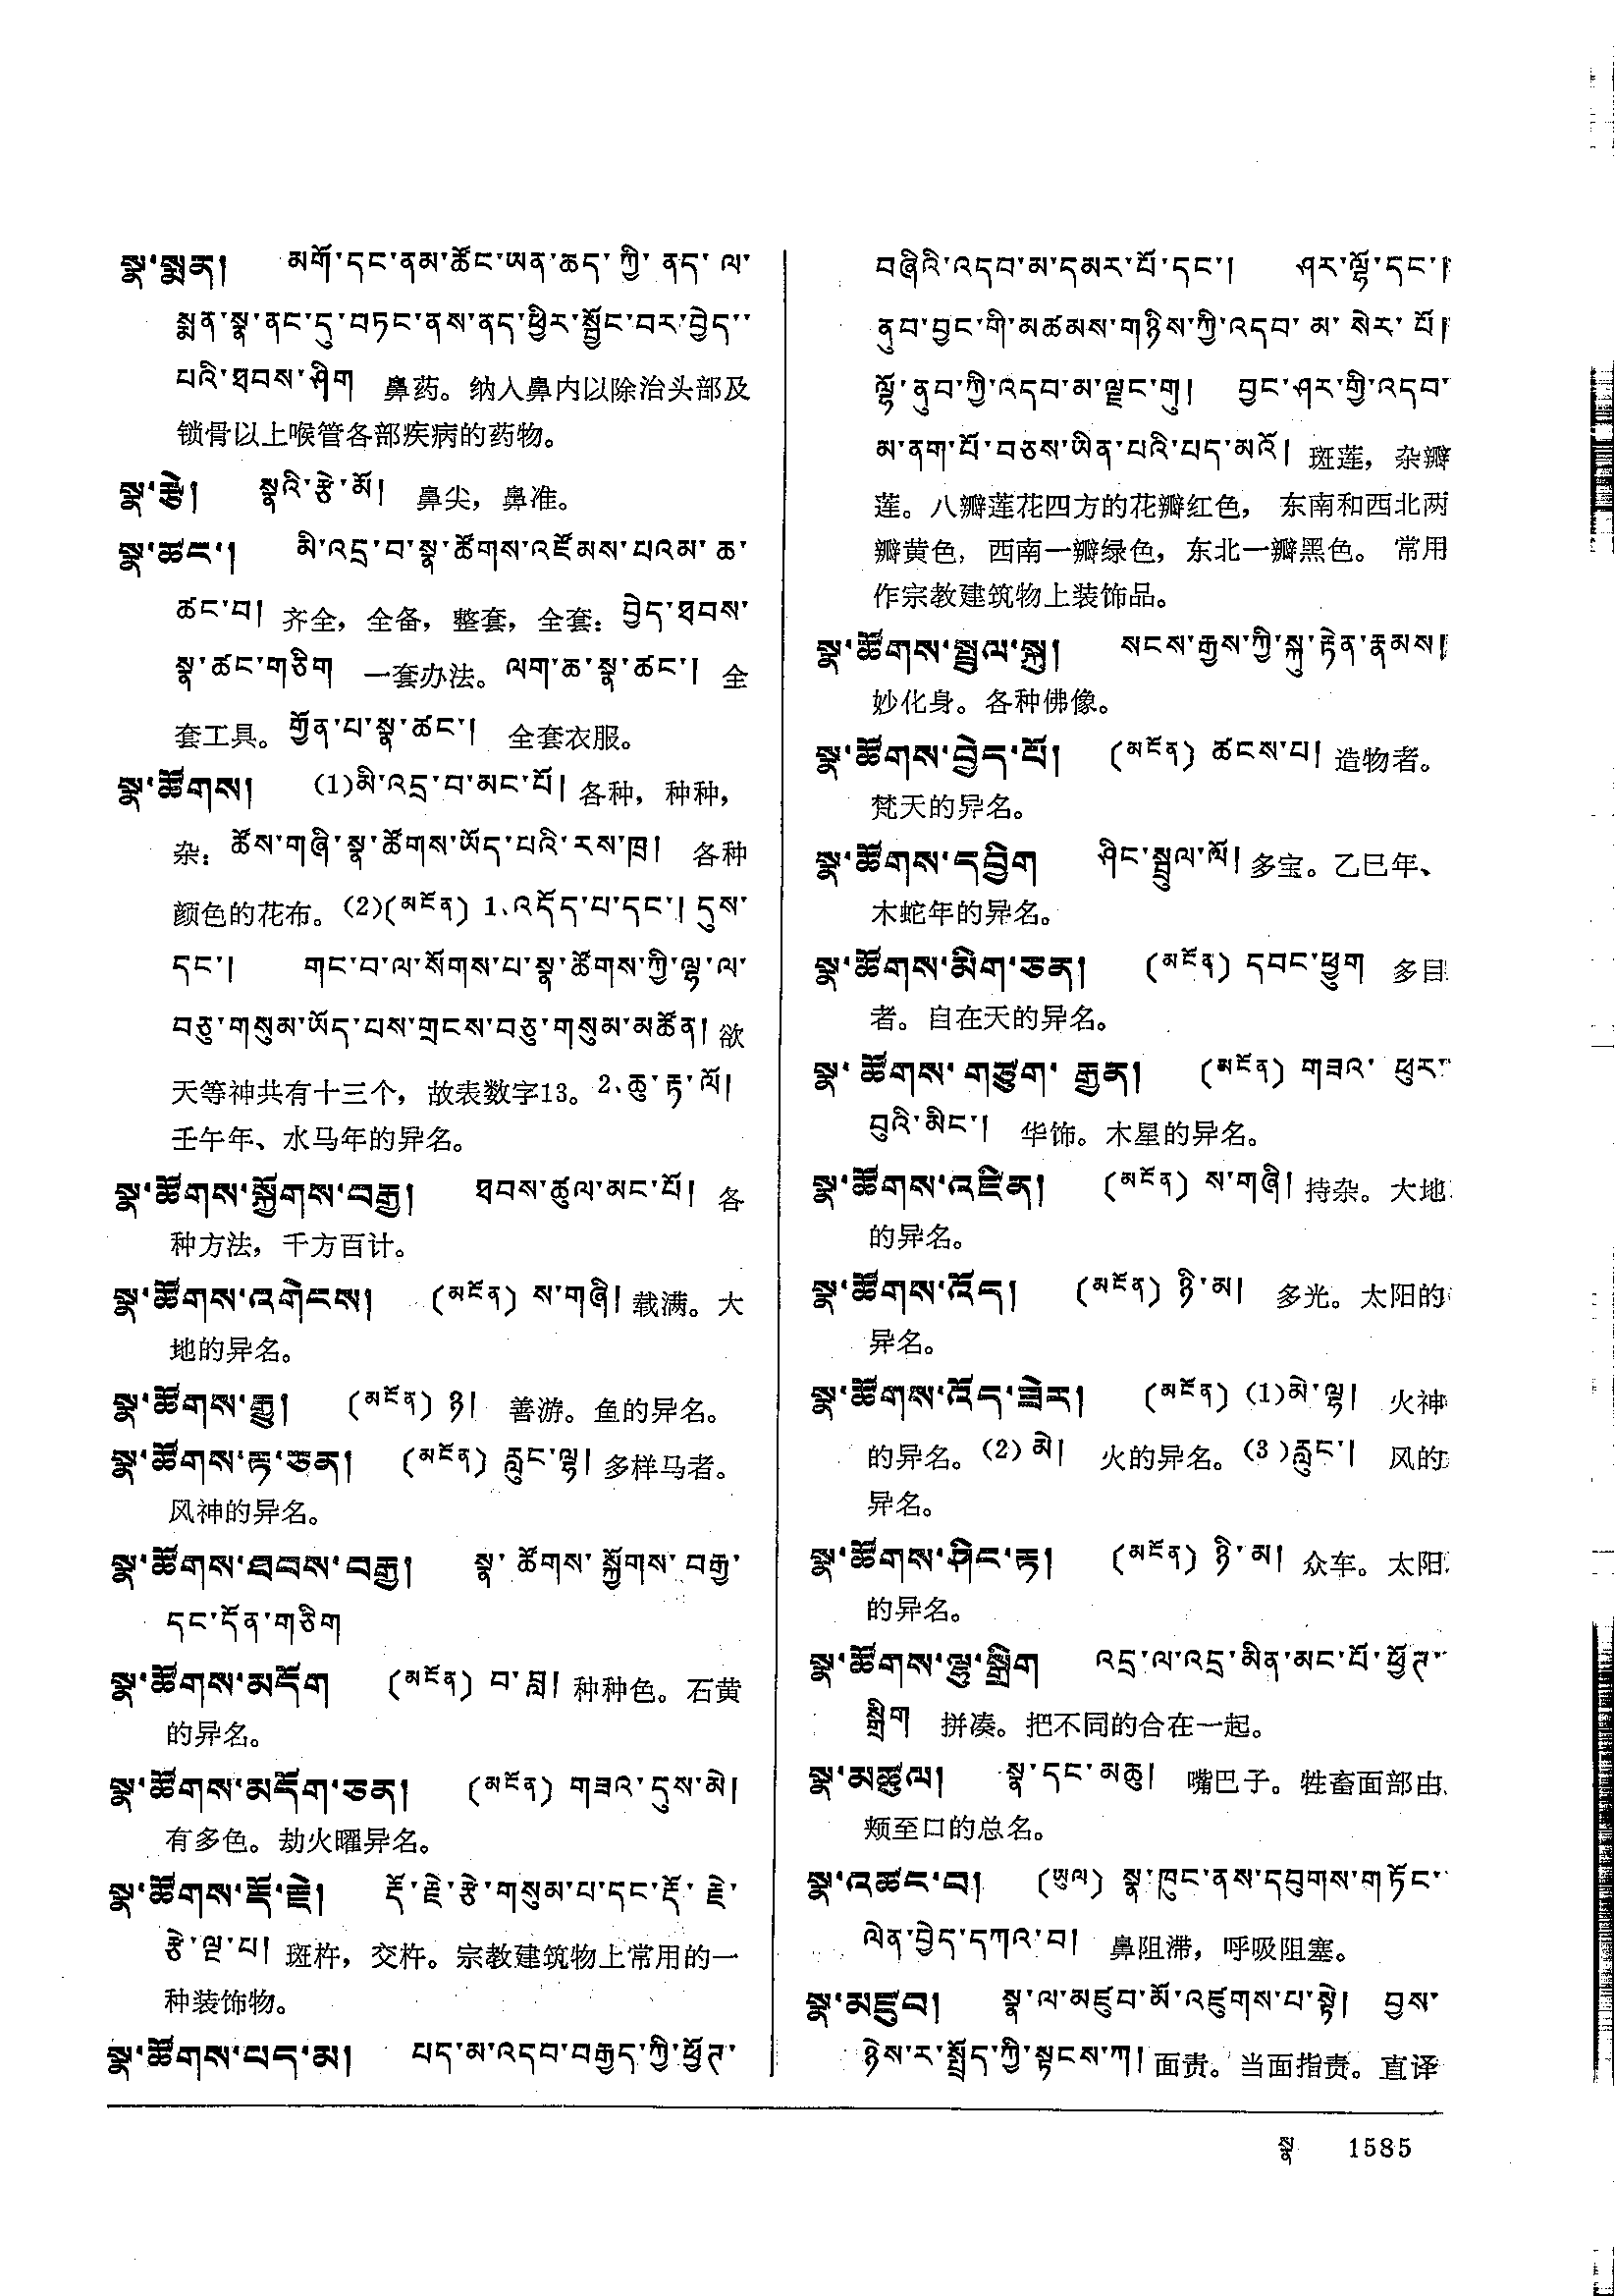 སྣ་སྨན། མགོ་དང་ནམ་ཚོང་ཡན་ཆད་ཀྱི་ནད་ལ་
སྨན་སྣ་ནང་དུ་བཏང་ནས་ནད་ཕྱིར་སྦྱོང་བར་བྱེད་
པའི་ཐབས་ཤིག 鼻药。纳入鼻内以除治头部及
锁骨以上喉管各部疾病的药物。
སྣ་རྩེ། སྣའི་རྩེ་མོ། 鼻尖，鼻准。
སྣ་ཚང་། མི་འདྲ་བ་སྣ་ཚོགས་འཛོམས་པའམ་ཆ་
ཚང་བ། 齐全，全备，整套，全套：བྱེད་ཐབས་
སྣ་ཚང་གཅིག 一套办法。ལག་ཆ་སྣ་ཚང་། 全
套工具。གྱོན་པ་སྣ་ཚང་། 全套衣服。
སྣ་ཚོགས། (1)མི་འདྲ་བ་མང་པོ། 各种，种种，
杂：ཚོས་གཞི་སྣ་ཚོགས་ཡོད་པའི་རས་ཁྲ། 各种
颜色的花布。(2)(མངོན) 1、འདོད་པ་དང་། དུས་
དང་། གང་བ་ལ་སོགས་པ་སྣ་ཚོགས་ཀྱི་ལྷ་ལ་
བཅུ་གསུམ་ཡོད་པས་གྲངས་བཅུ་གསུམ་མཚོན། 欲
天等神共有十三个，故表数字13。2、ཆུ་རྟ་ལོ།
壬午年、水马年的异名。
སྣ་ཚོགས་སྐྱོགས་བརྒྱ། ཐབས་ཚུལ་མང་པོ། 各
种方法，千方百计。
སྣ་ཚོགས་འགེངས། (མངོན) ས་གཞི། 载满。大
地的异名。
སྣ་ཚོགས་རྒྱུ། (མངོན) ཉ། 善游。鱼的异名。
སྣ་ཚོགས་རྟ་ཅན། (མངོན) རླུང་ལྷ། 多样马者。
风神的异名。
སྣ་ཚོགས་ཐབས་བརྒྱ། སྣ་ཚོགས་སྐྱོགས་བརྒྱ་
དང་དོན་གཅིག
སྣ་ཚོགས་མདོག (མངོན) བ་བླ། 种种色。石黄
的异名。
སྣ་ཚོགས་མདོག་ཅན། (མངོན) གཟའ་དུས་མེ།
有多色。劫火曜异名。
སྣ་ཚོགས་རྡོ་རྗེ། རྡོ་རྗེ་རྩེ་གསུམ་པ་དང་རྡོ་རྗེ་
རྩེ་ལྔ་པ། 斑杵，交杵。宗教建筑物上常用的一
种装饰物。
སྣ་ཚོགས་པད་མ། པད་མ་འདབ་བརྒྱད་ཀྱི་ཕྱོཊ་
བཞིའི་འདབ་མ་དམར་པོ་དང་། ཤར་ལྷོ་དང་།
ནུབ་བྱང་གི་མཚམས་གཉིས་ཀྱི་འདབ་མ་སེར་པོ།
ལྷོ་ནུབ་ཀྱི་འདབ་མ་ལྗང་གུ། བྱང་ཤར་གྱི་འདབ་
མ་ནག་པོ་བཅས་ཡིན་པའི་པད་མའོ། 斑莲，杂瓣
莲。八瓣莲花四方的花瓣红色，东南和西北两
瓣黄色，西南一瓣绿色，东北一瓣黑色。常用
作宗教建筑物上装饰品。
སྣ་ཚོགས་སྤྲུལ་སྐུ། སངས་རྒྱས་ཀྱི་སྐུ་རྟེན་རྣམས།
妙化身。各种佛像。
སྣ་ཚོགས་བྱེད་པོ། (མངོན) ཚངས་པ། 造物者。
梵天的异名。
སྣ་ཚོགས་དབྱིག ཤིང་སྦྲུལ་ལོ། 多宝。乙巳年、
木蛇年的异名。
སྣ་ཚོགས་མིག་ཅན། (མངོན) དབང་ཕྱུག 多目
者。自在天的异名。
སྣ་ཚོགས་གཙུག་རྒྱན། (མངོན) གཟའ་ཕུར་
བུའི་མིང་། 华饰。木星的异名。
སྣ་ཚོགས་འཛིན། (མངོན) ས་གཞི། 持杂。大地
的异名。
སྣ་ཚོགས་འོད། (མངོན) ཉི་མ། 多光。太阳的
异名。
སྣ་ཚོགས་འོད་ཟེར། (མངོན) (1)མེ་ལྷ། 火神
的异名。(2) མེ། 火的异名。(3)རླུང་། 风的
异名。
སྣ་ཚོགས་ཤིང་རྟ། (མངོན) ཉི་མ། 众车。太阳
的异名。
སྣ་ཚོགས་ལྷུ་སྒྲིག འདྲ་ལ་འདྲ་མིན་མང་པོ་ཕྱོཊ་
སྒྲིག 拼凑。把不同的合在一起。
སྣ་མཚུལ། སྣ་དང་མཆུ། 嘴巴子。牲畜面部由
颊至口的总名。
སྣ་འཚང་བ། (ཡུལ) སྣ་ཁུང་ནས་དབུགས་གཏོང་
ལེན་བྱེད་དཀའ་བ། 鼻阻滞，呼吸阻塞。
སྣ་མཛུབ། སྣ་ལ་མཛུབ་མོ་འཛུགས་པ་སྟེ། བྱས་
ཉེས་ར་སྤྲོད་ཀྱི་སྟངས་ཀ། 面责。当面指责。直译
སྣ 1585